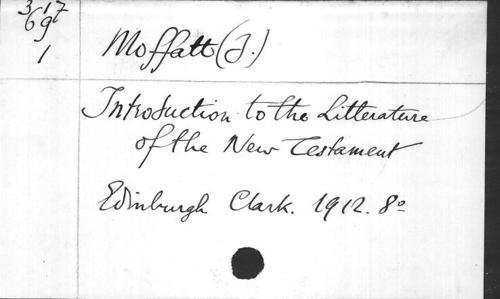 3-17
69
1
Moffatt (J.)
Introduction to the Litterature
of the New Testament
Edinburgh Clark. 1912. 8º